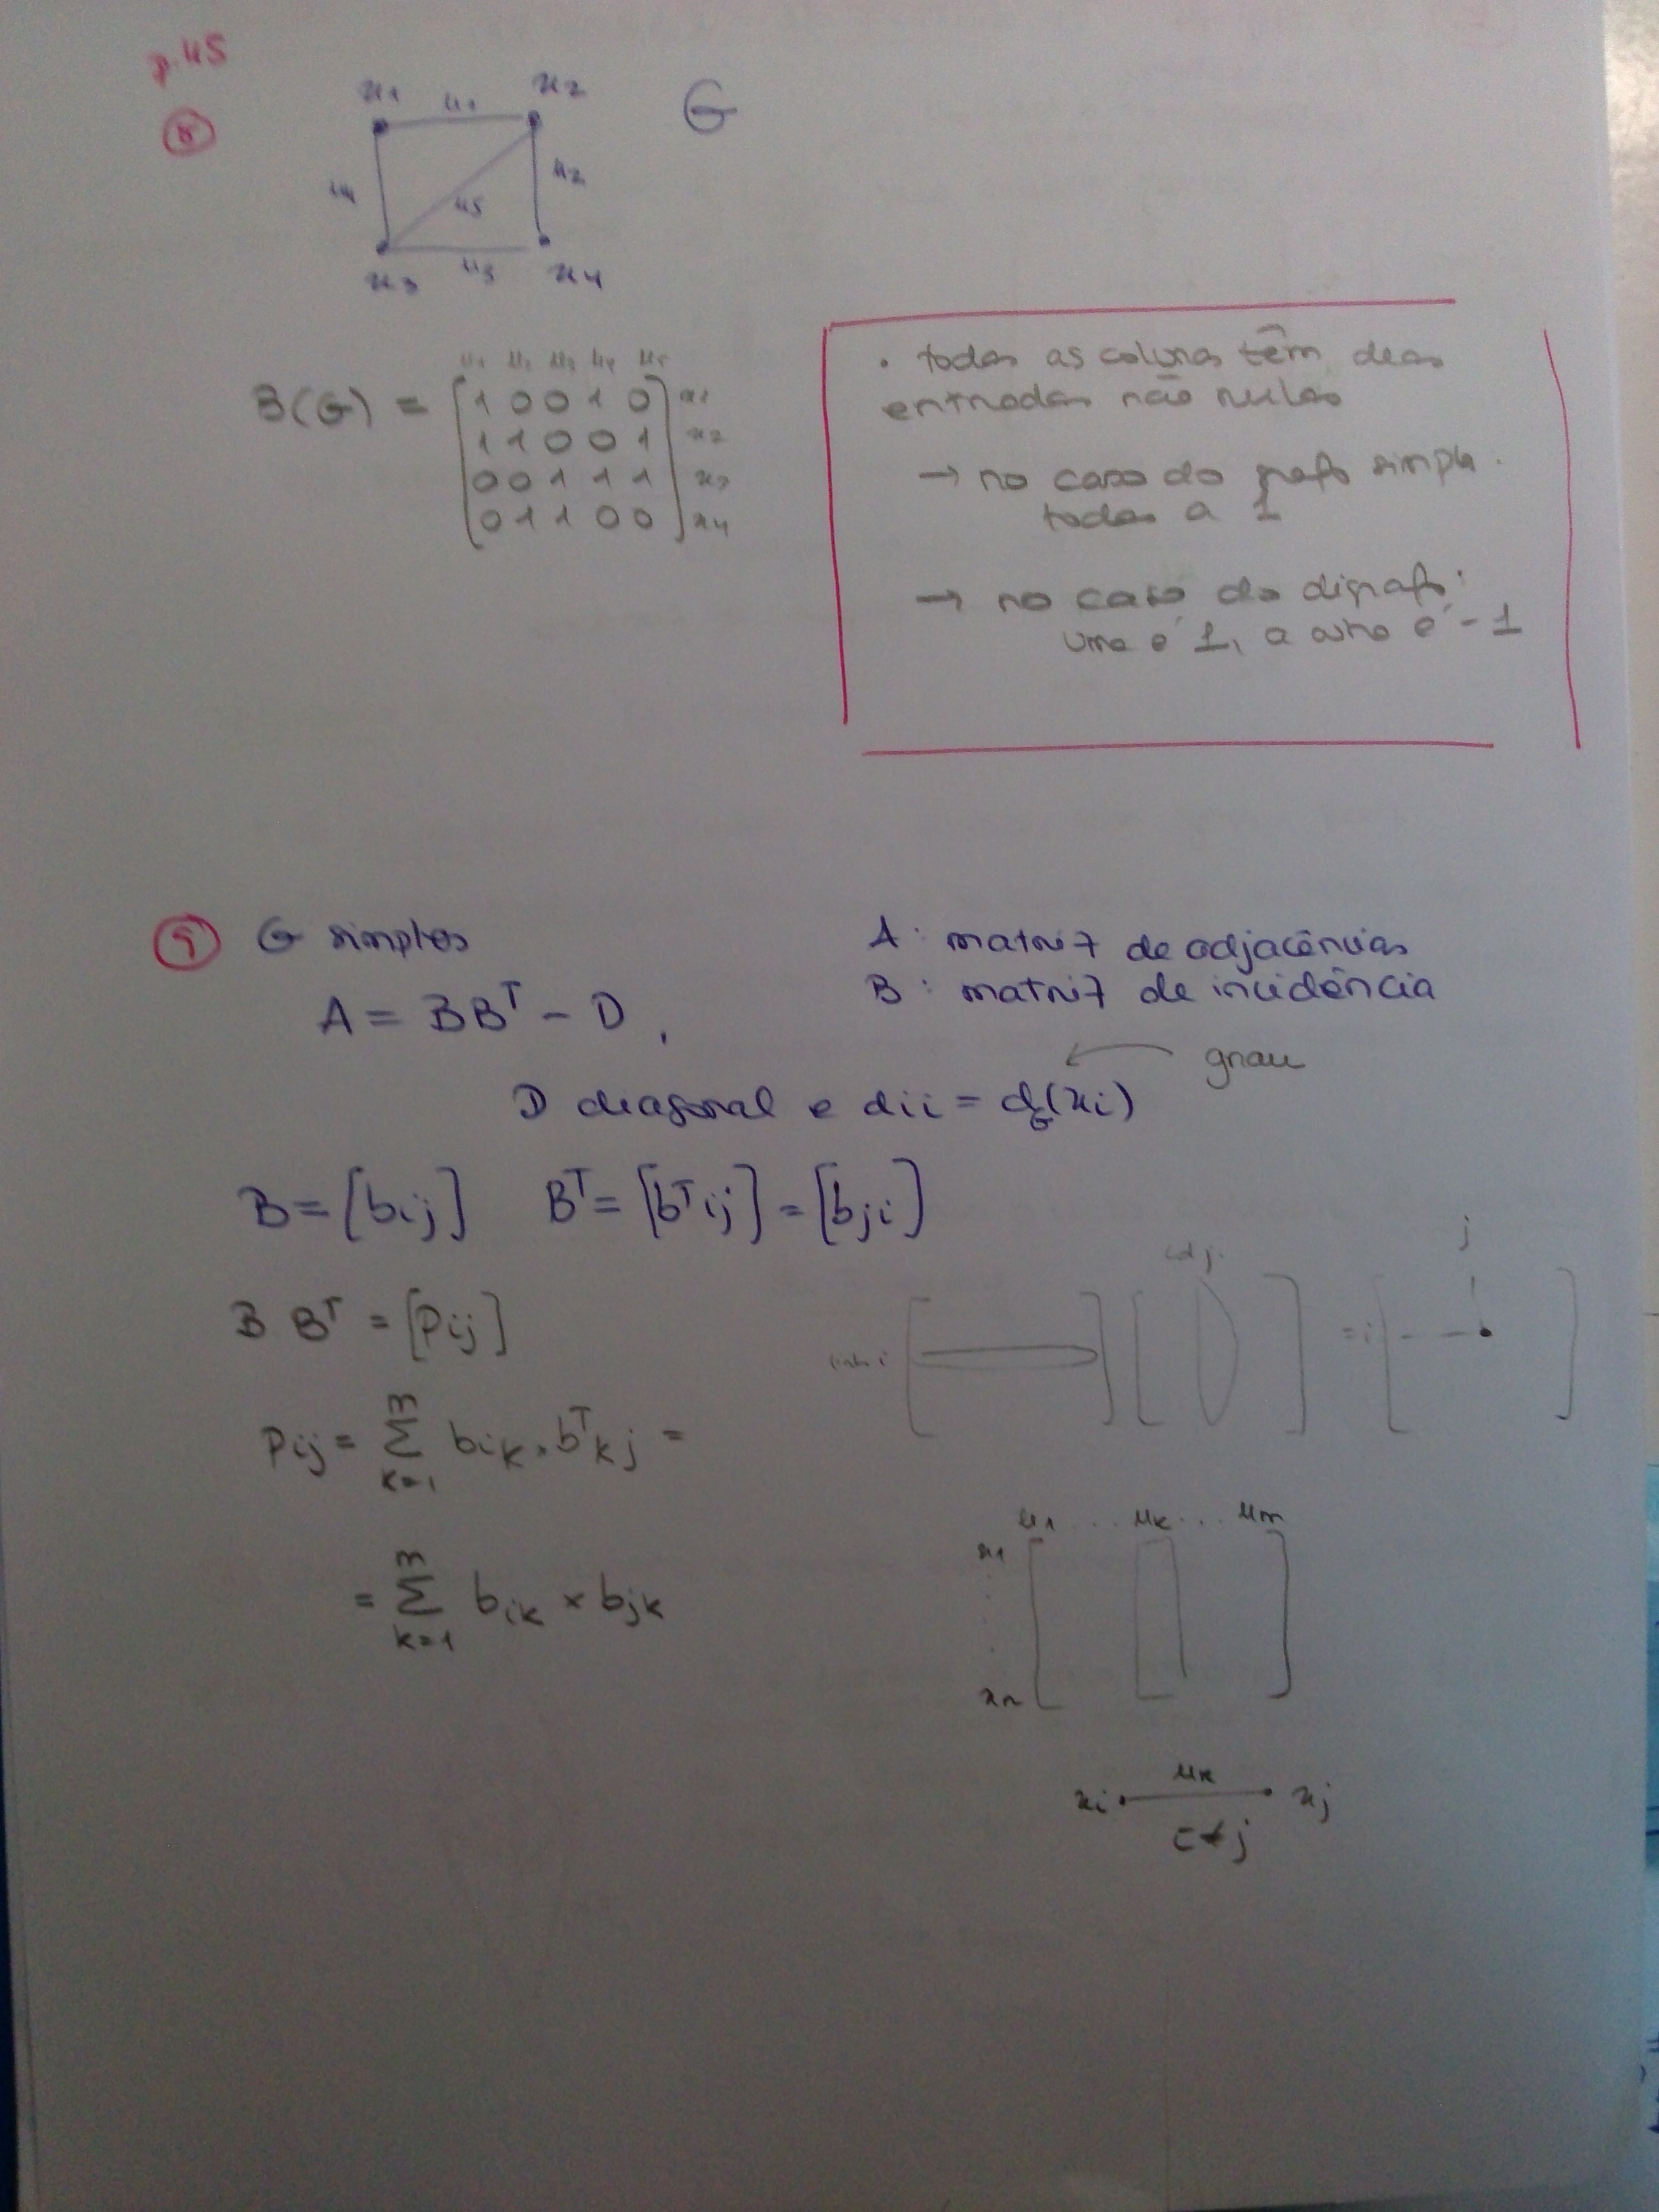 p. 45
8
x1 u1 x2 G
u4 u5 u2
x3 u3 x4
u1 u2 u3 u4 u5
B(G) = [1 0 0 1 0] x1
[1 1 0 0 1] x2
[0 0 1 1 1] x3
[0 1 1 0 0] x4
• todas as colunas têm duas
entradas não nulas
→ no caso do grafo simples
todas a 1
→ no caso do digrafo:
uma é 1, a outra é -1
9 G simples
A = BBᵀ - D,
A: matriz de adjacências
B: matriz de incidência
grau
D diagonal e dii = dG(xi)
B = [bij] Bᵀ = [bᵀij] = [bji]
B Bᵀ = [Pij]
linha i col j. = i j
Pij = Σ k=1 m bik . bᵀkj =
= Σ k=1 m bik × bjk
u1 ... uk ... um
x1
xn
xi uk xj
i≠j